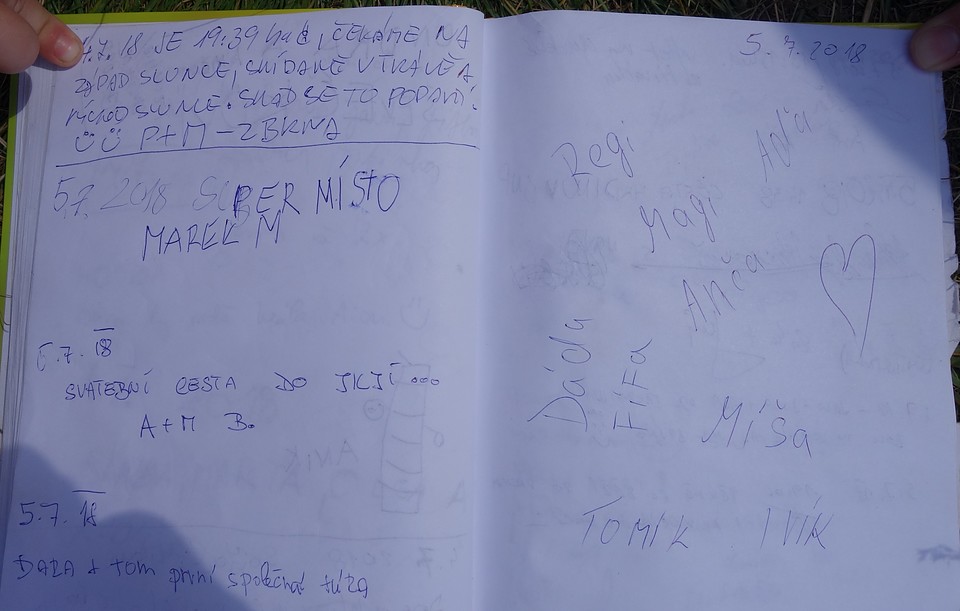 4.7. 18 JE 19:39 hod, ČEKÁME NA
ZÁPAD SLUNCE, SNÍDANĚ V TRÁVĚ A
VÝCHOD SLUNCE. SNAD SE TO PODAŘÍ.
P+M - Z BRNA
5.7. 2018 SUPER MÍSTO
MAREK M
5.7. 18
SVATEBNÍ CESTA DO
A+M B.
5.7. 18
DARA + TOM první společná túra
5.7.2018
Regi
Aďa
Magi
Anča
Dáda
Fífa
Míša
TOMÍK IVÍK